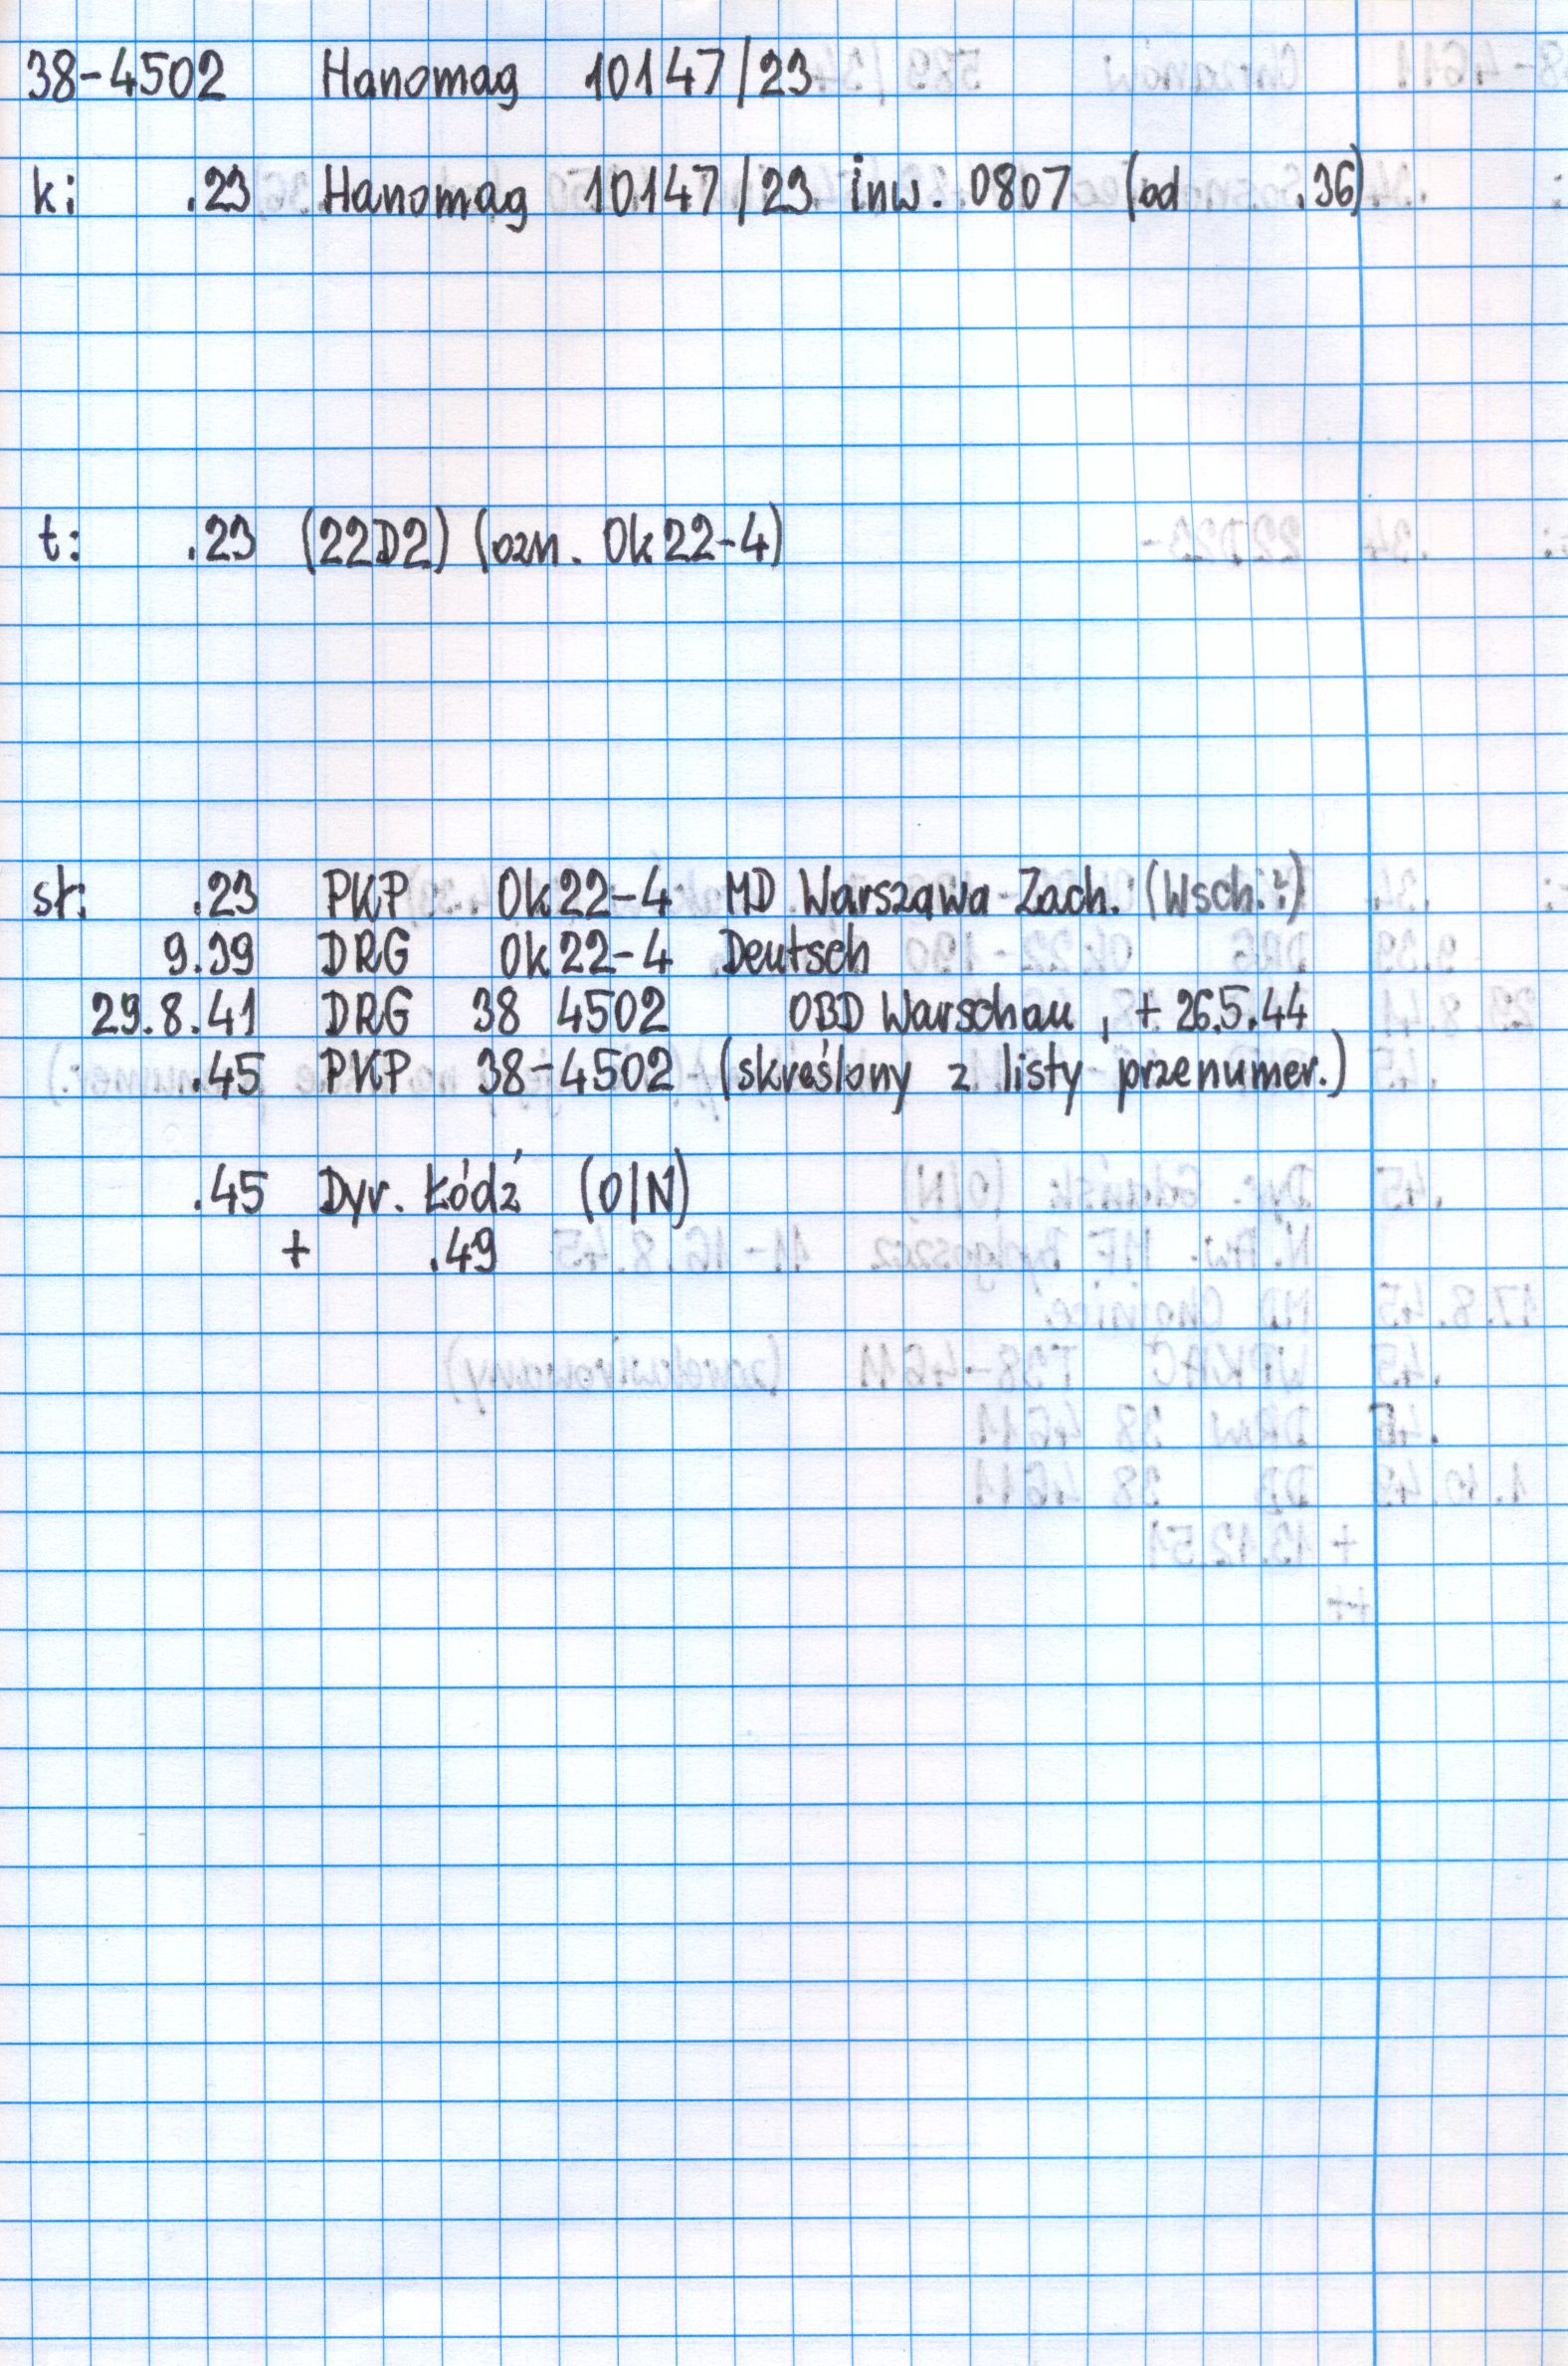 38-4502 Hanomag 10147/23
k: .23 Hanomag 10147/23 inw. 0807 (od .36)
t: .23 (22D2) (ozn. Ok22-4)
sł: .23 PKP Ok22-4 MD Warszawa Zach. (Wsch.?)
9.39 DRG Ok22-4 Deutsch
29.8.41 DRG 38 4502 OBD Warschau, + 26.5.44
.45 PKP 38-4502 (skreślony z listy przenumer.)
.45 Dyr. Łódź (O/N)
+ .49